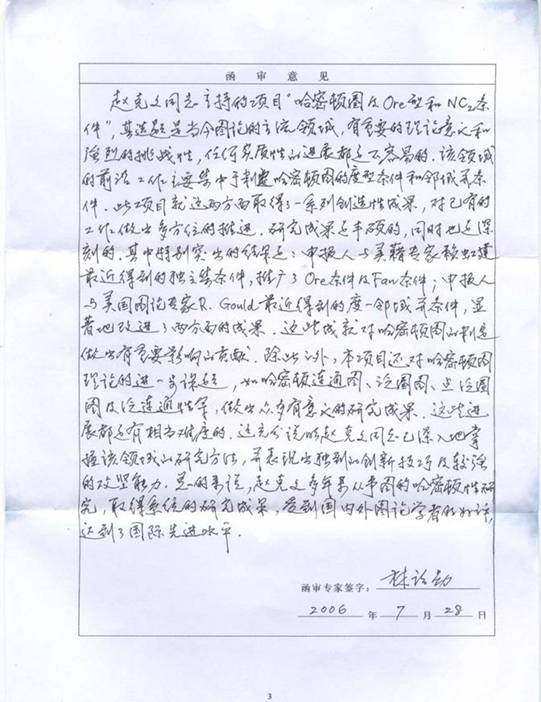 函 审 意 见
赵克文同志主持的项目“哈密顿图及Ore型和NC2条
件”,其选题是当今图论的主流领域,有重要的理论意义和
强烈的挑战性,任何实质性的进展都是不容易的.该领域
的前沿工作主要集中于判定哈密顿图的度型条件和邻域并条
件.此项目就这两方面取得了一系列创造性成果,对已有的
工作做出多方位的推进.研究成果是丰硕的,同时也是深
刻的.其中特别突出的结果是:申报人与美籍专家赖虹建
最近得到的独立集条件,推广了Ore条件及Fan条件;申报人
与美国图论专家R. Gould最近得到的度—邻域并条件,显
著地改进了两方面的成果.这些成就对哈密顿图的判定
做出有重要影响的贡献.除此之外,本项目还对哈密顿图
理论的进一步课题,如哈密顿连通图、泛圈图、点泛圈
图及泛连通性等,做出众多有意义的研究成果.这些进
展都是有相当难度的.这充分说明赵克文同志已深入地掌
握该领域的研究方法,并表现出独到的创新技巧及较强
的攻坚能力.总的来说,赵克文多年来从事图的哈密顿性研
究,取得系统的研究成果,受到国内外图论学者的好评,
达到了国际先进水平.
函审专家签字:林诒勋
2006 年 7 月 28 日
3